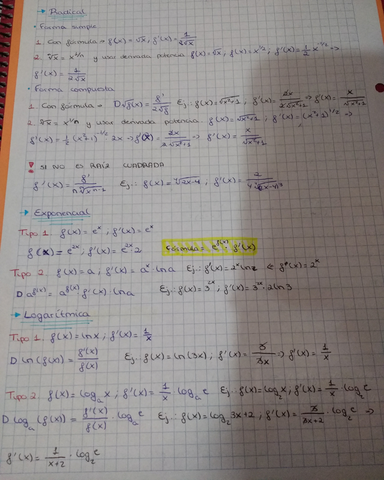 → Radical
• Forma simple
1. Con fórmula → f(x) = √x, f'(x) = 1/2√x
2. ⁿ√x = x^1/n y usas derivada potencia f(x) = √x, f(x) = x^1/2, f'(x) = 1/2 x^-1/2 →
f'(x) = 1/2√x
• Forma compuesta
1. Con fórmula → D√f(x) = f'/2√f Ej.: f(x) = √x²+1, f'(x) = 2x/2√x²+1 → f'(x) = x/√x²+1
2. ⁿ√x = x^1/n y usas derivada potencia. f(x) = √x²+1, f'(x) = (x²+1)^1/2 →
f'(x) = 1/2 (x²+1)^-1/2 2x → f'(x) = 2x/2√x²+1 → f'(x) = x/√x²+1
? SI NO ES RAÍZ CUADRADA
f'(x) = f'/n ⁿ√x^n-1 Ej.: f(x) = ⁴√2x-4, f'(x) = 2/4 ⁴√(2x-4)³
→ Exponencial
Tipo 1. f(x) = e^x, f'(x) = e^x
f(x) = e^2x, f'(x) = e^2x 2 Fórmula = e^f(x) · f'(x)
Tipo 2. f(x) = a, f'(x) = a^x · ln a Ej.: f'(x) = 2^x ln 2 ∈ f(x) = 2^x
D a^f(x) = a^f(x) f'(x) · ln a Ej.: f(x) = 3^2x, f'(x) = 3^2x · 2 ln 3
→ Logarítmica
Tipo 1. f(x) = ln x, f'(x) = 1/x
D ln (f(x)) = f'(x)/f(x) Ej.: f(x) = ln (3x), f'(x) = 3/3x → f'(x) = 1/x
Tipo 2. f(x) = log_a x, f'(x) = 1/x · log_a e Ej.: f(x) = log_2 x, f'(x) = 1/x · log_2 e
D log_a (f(x)) = f'(x)/f(x) · log_a e Ej.: f(x) = log_2 3x+2, f'(x) = 3/3x+2 · log_2 e →
f'(x) = 1/x+2 · log_2 e